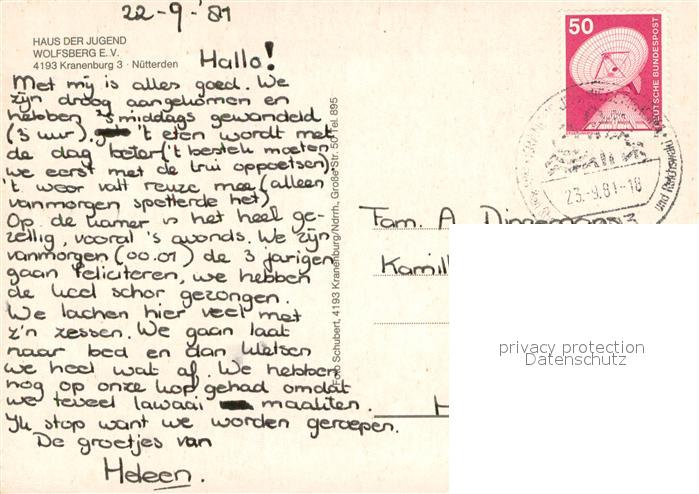 22-9-'81
HAUS DER JUGEND
WOLFSBERG E.V.
4193 Kranenburg 3 · Nütterden
Hallo!
Met mij is alles goed. We
zijn droog aangekomen en
hebben 's middags gewandeld
(3 uur). 't eten wordt met
de dag beter ('t bestek moeten
we eerst met de trui oppoetsen)
't weer valt reuze mee (alleen
vanmorgen spetterde het)
Op de kamer is het heel ge-
zellig, vooral 's avonds. We zijn
vanmorgen (00.01) de 3 jarigen
gaan feliciteren, we hebben
de keel schor gezongen.
We lachen hier veel met
z'n zessen. We gaan laat
naar bed en dan kletsen
we heel wat af. We hebben
nog op onze kop gehad omdat
we teveel lawaai maakten.
Ik stop want we worden geroepen.
De groetjes van
Heleen.
Foto Schubert, 4193 Kranenburg/Ndrrh., Große Str. 50 Tel. 895
50
DEUTSCHE BUNDESPOST
23.-9.81-18
und Reichswald
Fam. A.
Kamill
H
privacy protection
Datenschutz